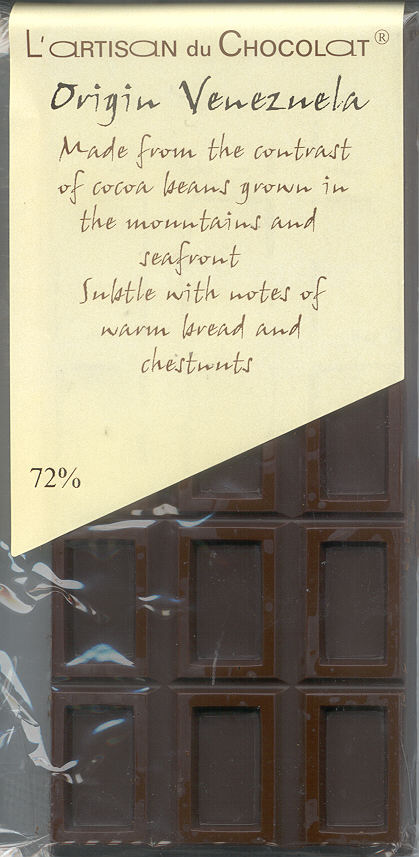 L'ARTISAN DU CHOCOLAT®
Origin Venezuela
Made from the contrast
of cocoa beans grown in
the mountains and
seafront
Subtle with notes of
warm bread and
chestnuts
72%